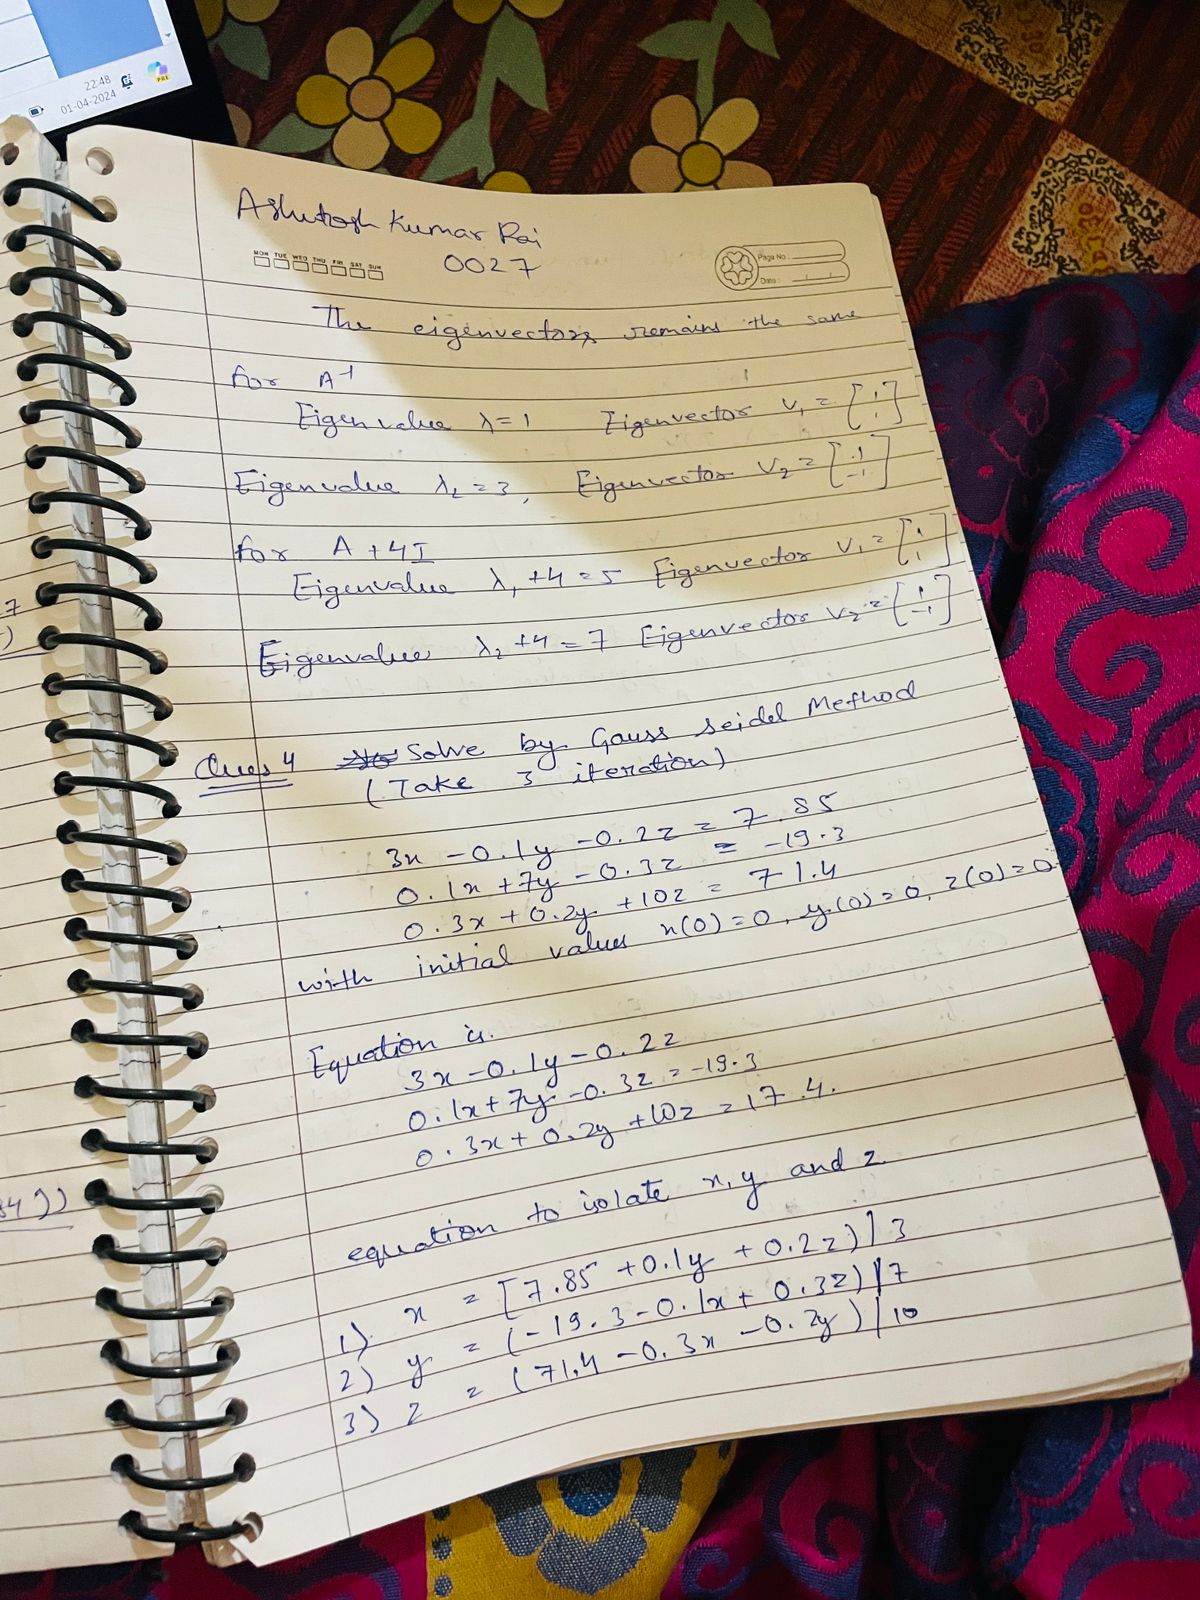 22:48
01-04-2024
PRE
Ashutosh Kumar Rai
0027
MON TUE WED THU FRI SAT SUN
Page No :
Date :
The eigenvectors remains the same
for A⁻¹
Eigenvalue λ=1 Eigenvector V₁ = [1 1]
Eigenvalue λ₂ = 3, Eigenvector V₂ = [1 -1]
for A + 4I
Eigenvalue λ₁ + 4 = 5 Eigenvector V₁ = [1 1]
Eigenvalue λ₂ + 4 = 7 Eigenvector V₂ = [1 -1]
Ques 4 Solve by Gauss seidel Method
(Take 3 iteration)
3x - 0.1y - 0.2z = 7.85
0.1x + 7y - 0.3z = -19.3
0.3x + 0.2y + 10z = 71.4
with initial values x(0) = 0, y(0) = 0, z(0) = 0
Equation is.
3x - 0.1y - 0.2z
0.1x + 7y - 0.3z = -19.3
0.3x + 0.2y + 10z = 17.4.
equation to isolate x, y and z
1) x = [7.85 + 0.1y + 0.2z) / 3
2) y = (-19.3 - 0.1x + 0.3z) / 7
3) z = (71.4 - 0.3x - 0.2y) / 10